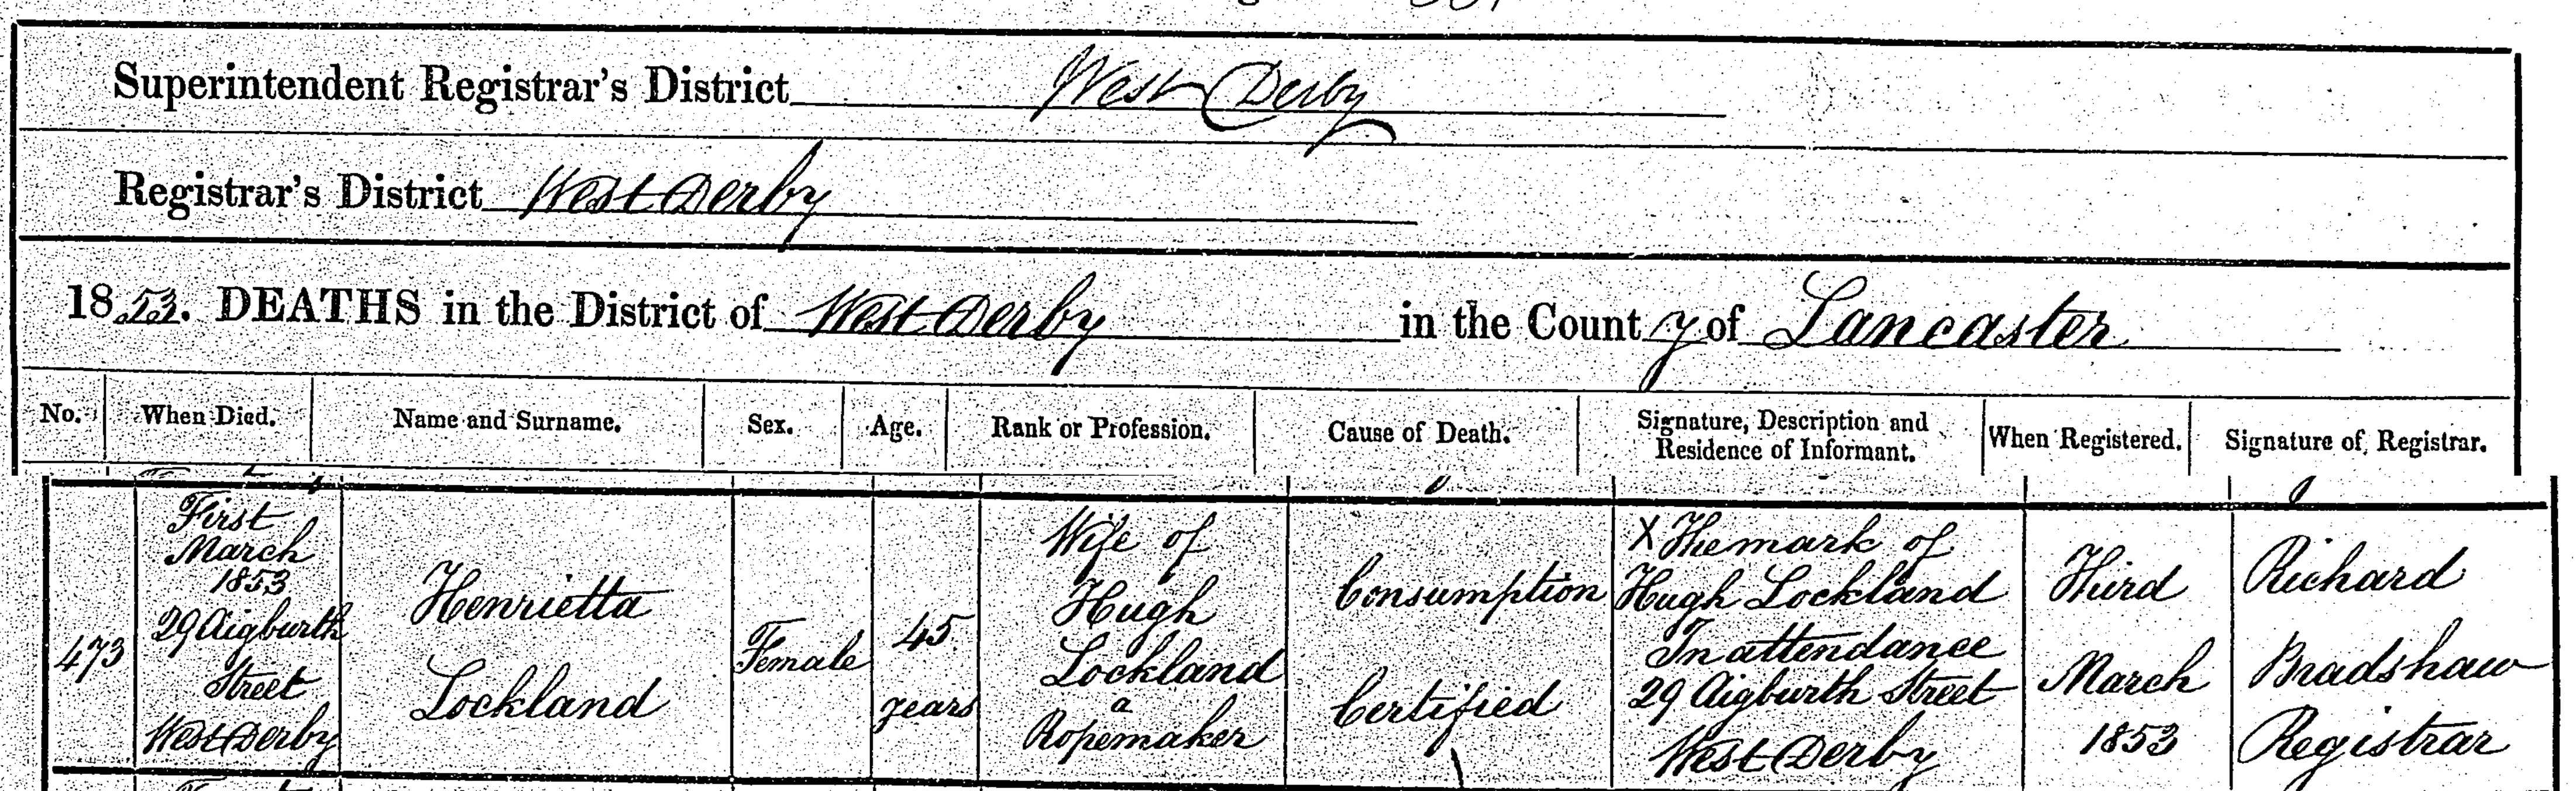 Superintendent Registrar's District West Derby
Registrar's District West Derby
1853. DEATHS in the District of West Derby in the County of Lancaster
No. When Died. Name and Surname. Sex. Age. Rank or Profession. Cause of Death. Signature, Description and Residence of Informant. When Registered. Signature of Registrar.
473
First
March
1853
29 Aigburth
Street
West Derby
Henrietta
Lockland
Female
45
years
Wife of
Hugh
Lockland
a
Ropemaker
Consumption
Certified
X The mark of
Hugh Lockland
In attendance
29 Aigburth Street
West Derby
Third
March
1853
Richard
Bradshaw
Registrar